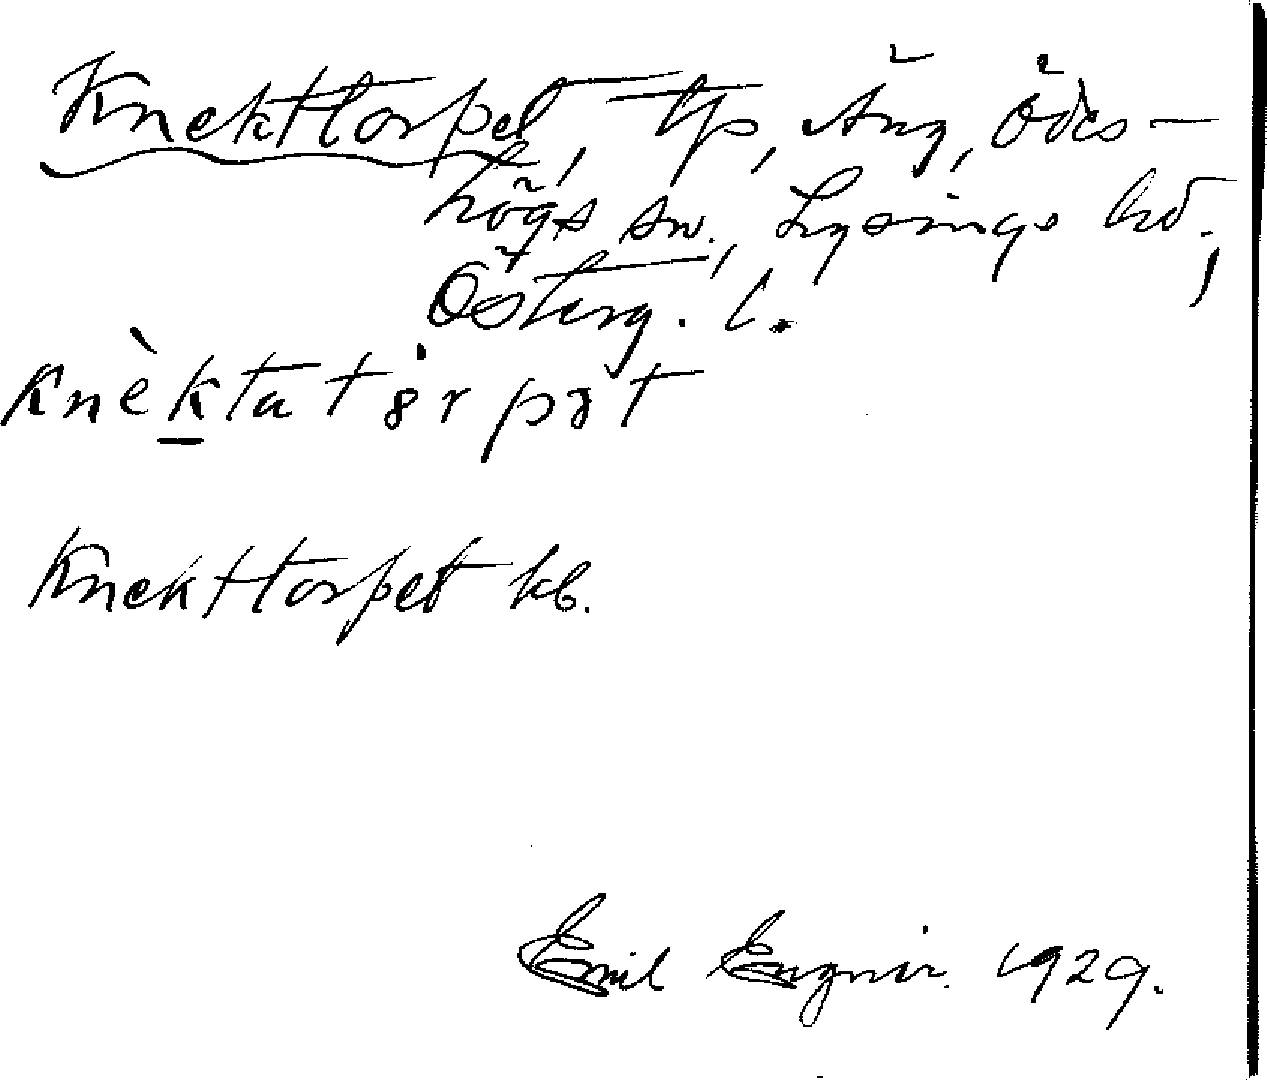 Knekttorpet, tp, Äng, Ödes-
högs sn., Lysings hd.,
Österg. l.
knèktatɵrpət
Knekttorpet kb.
Emil 1929.